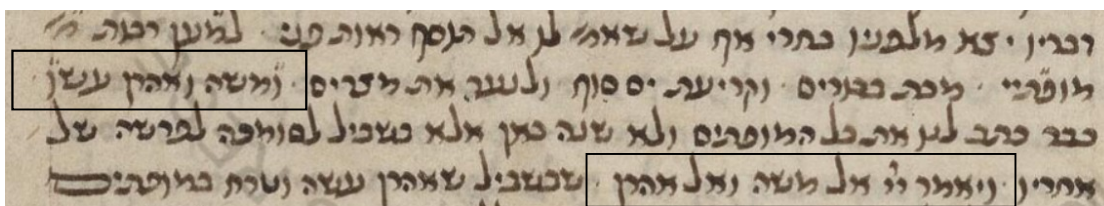 דבריו יצא מלפניו בחרי אף על שאמ' לו אל תוסף ראות פני · למען רבות מ'
מופתיי · מכת בכורים · וקריעת ים סוף ולנער את מצרים · ומשה ואהרן עשו ·
כבר כתב לנו את כל המופתים ולא שנה כאן אלא בשביל לסומכה לפרשה של
אחריו · ויאמר יי אל משה ואל אהרן · שבשביל שאהרן עשה וטרח במופתים